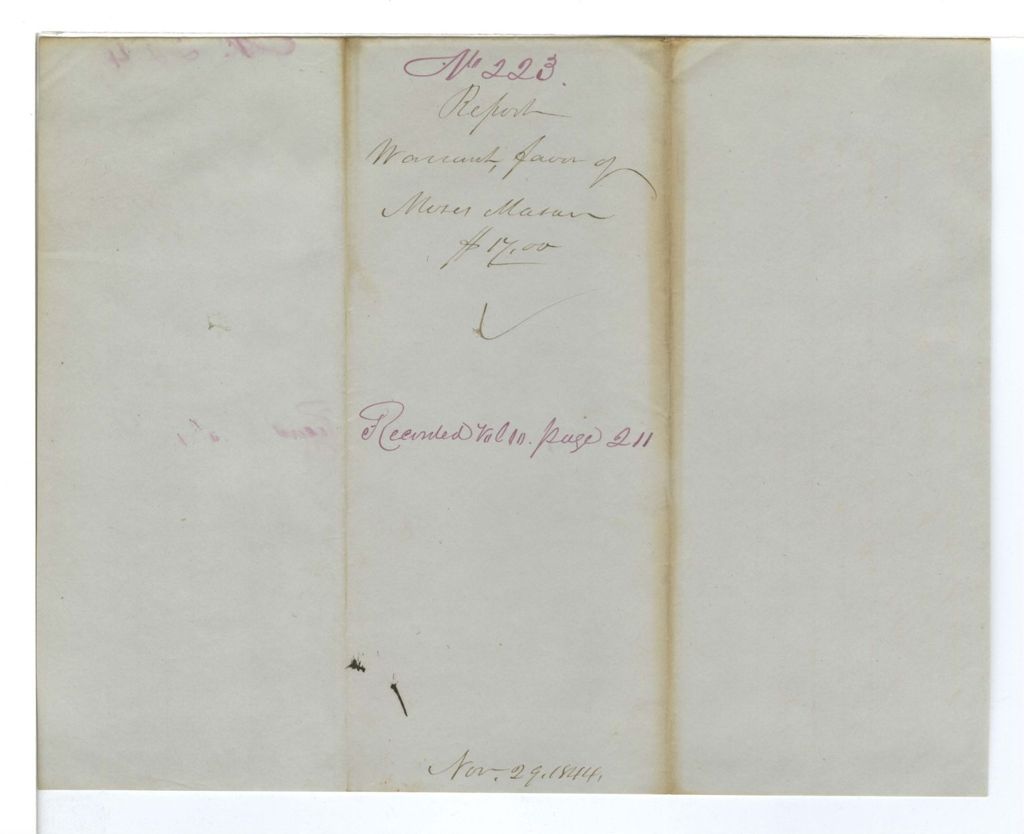 No 223.
Report
Warrant, favor of
Moses Mason
$17.00
Recorded Vol 10. page 211
Nov. 29. 1844.